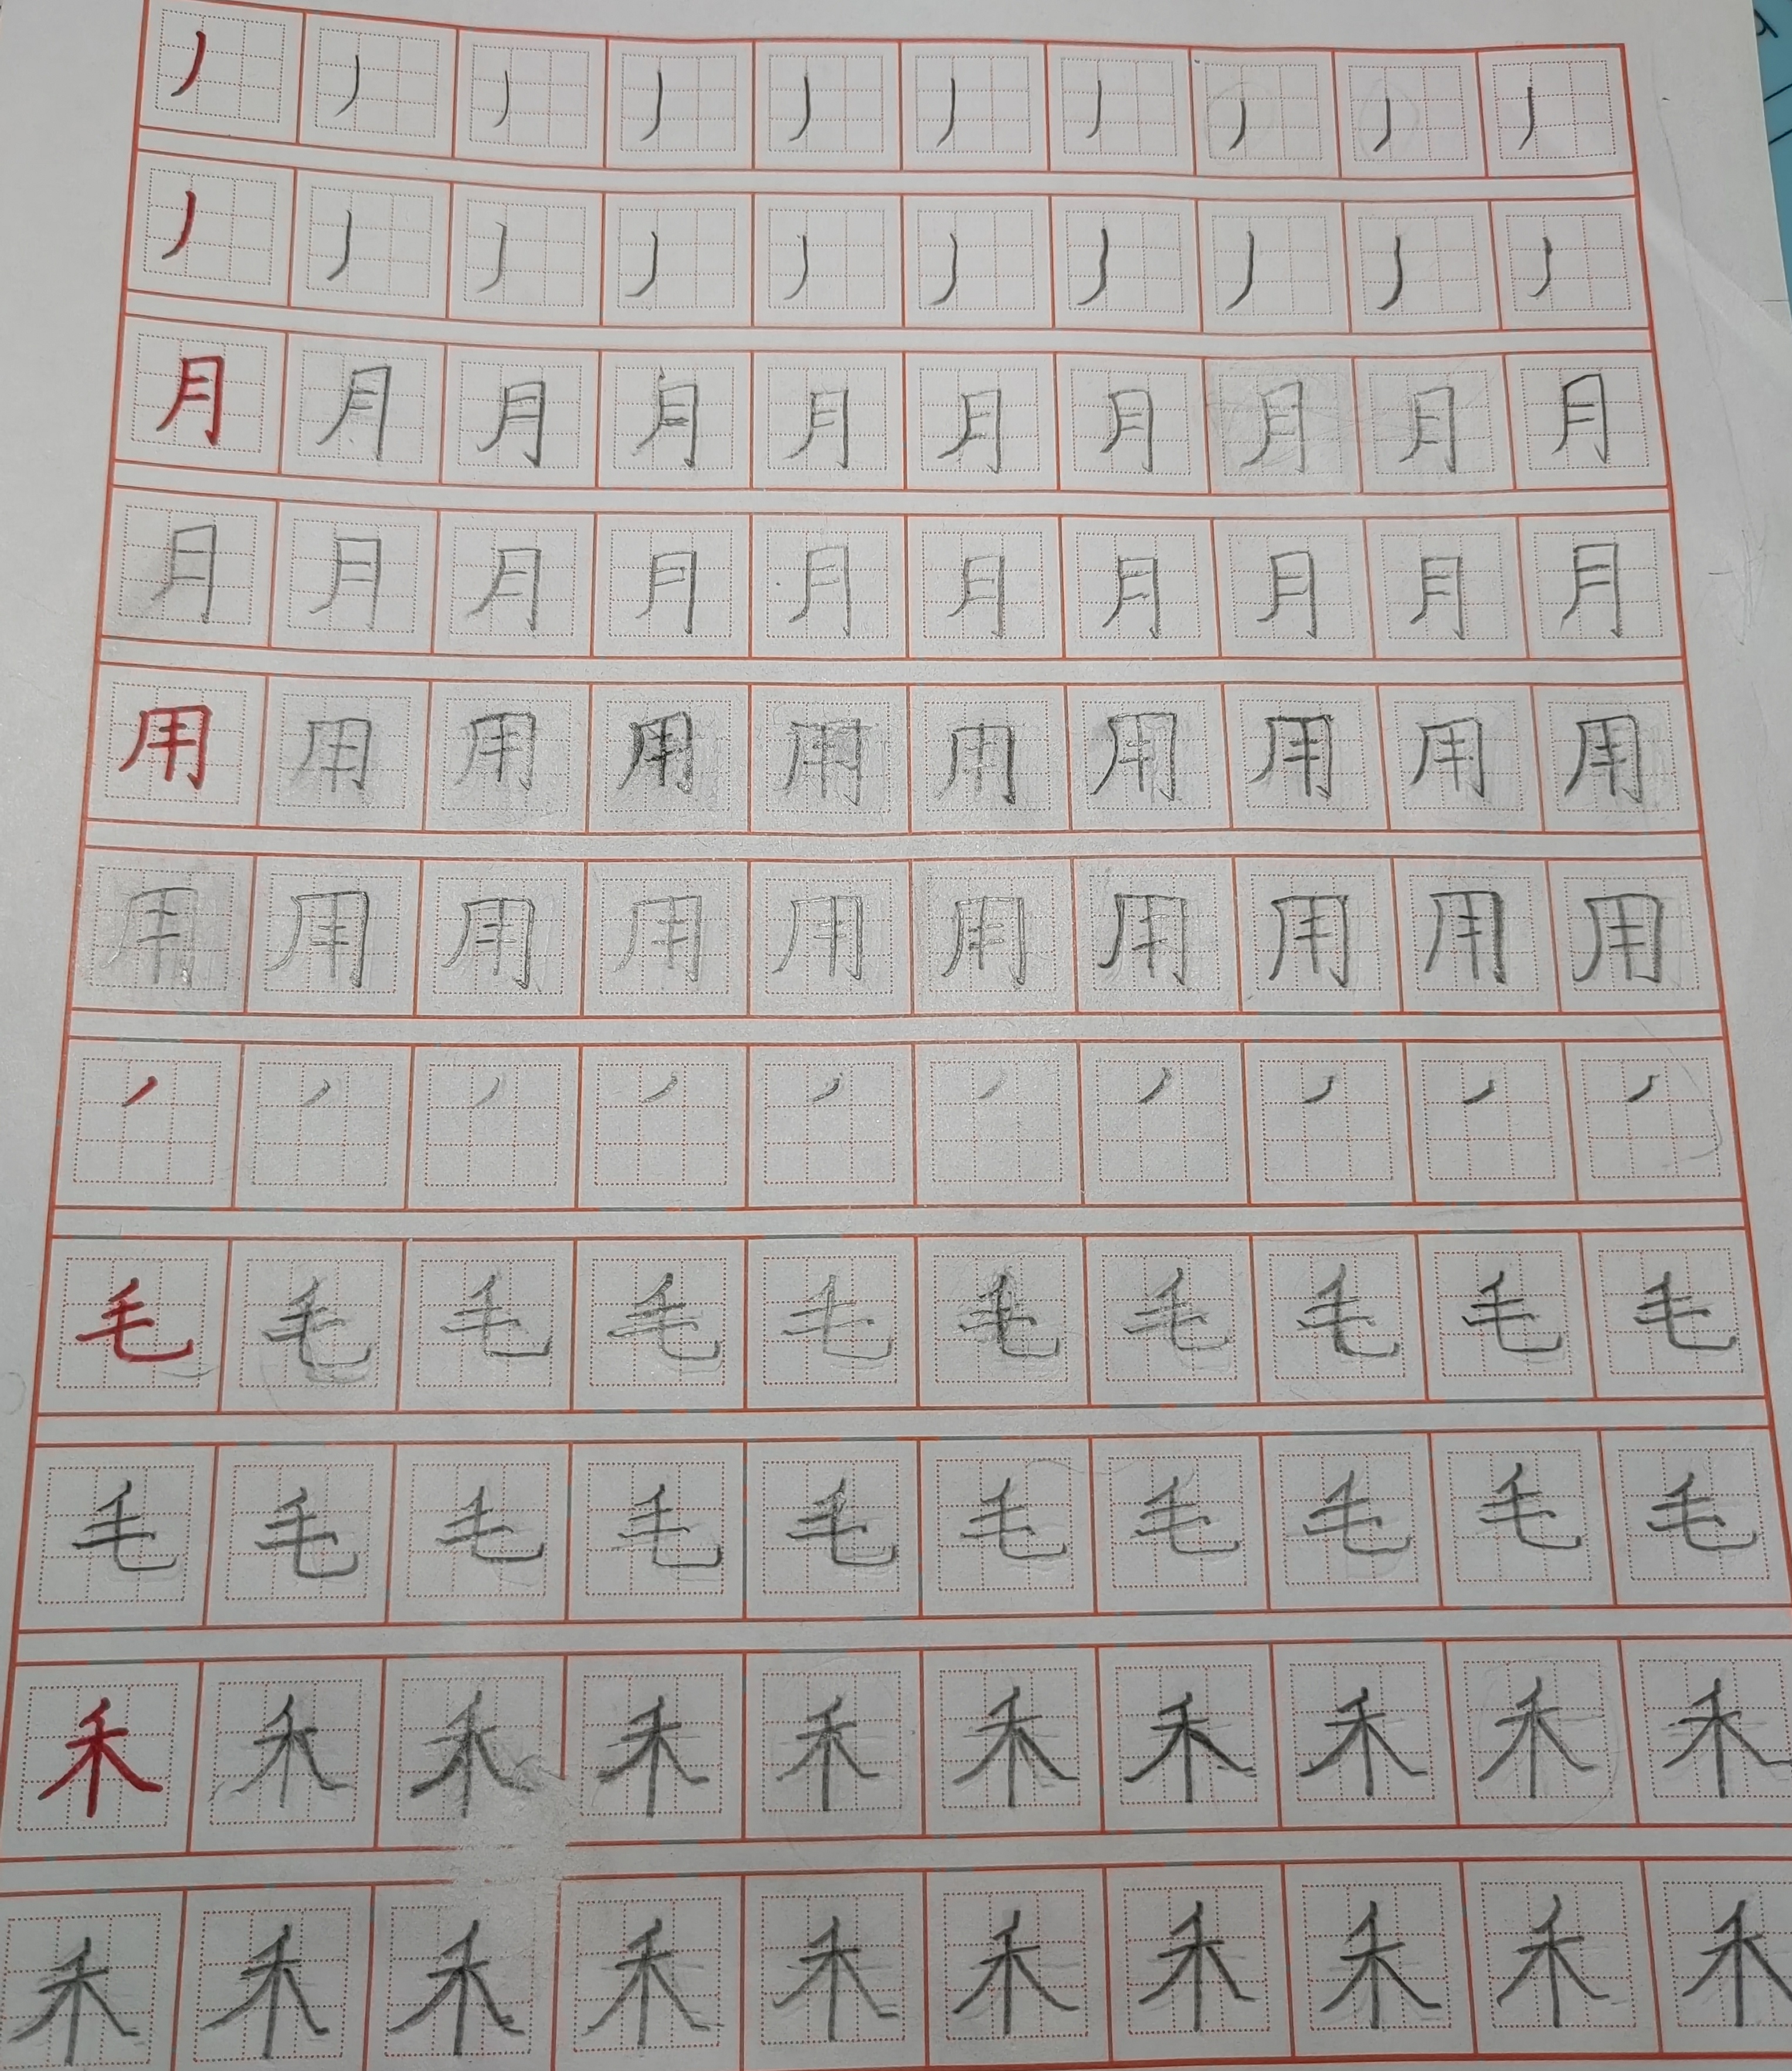 丿丿丿丿丿丿丿丿丿丿
丿丿丿丿丿丿丿丿丿丿
月月月月月月月月月月
月月月月月月月月月月
用用用用用用用用用用
用用用用用用用用用用
丿丿丿丿丿丿丿丿丿丿
毛毛毛毛毛毛毛毛毛毛
毛毛毛毛毛毛毛毛毛毛
禾禾禾禾禾禾禾禾禾禾
禾禾禾禾禾禾禾禾禾禾